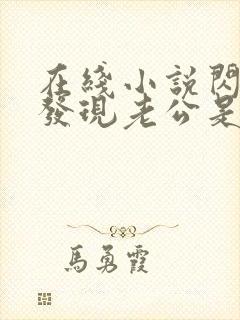 在綫小説閃
發現老公是
馬勇霞